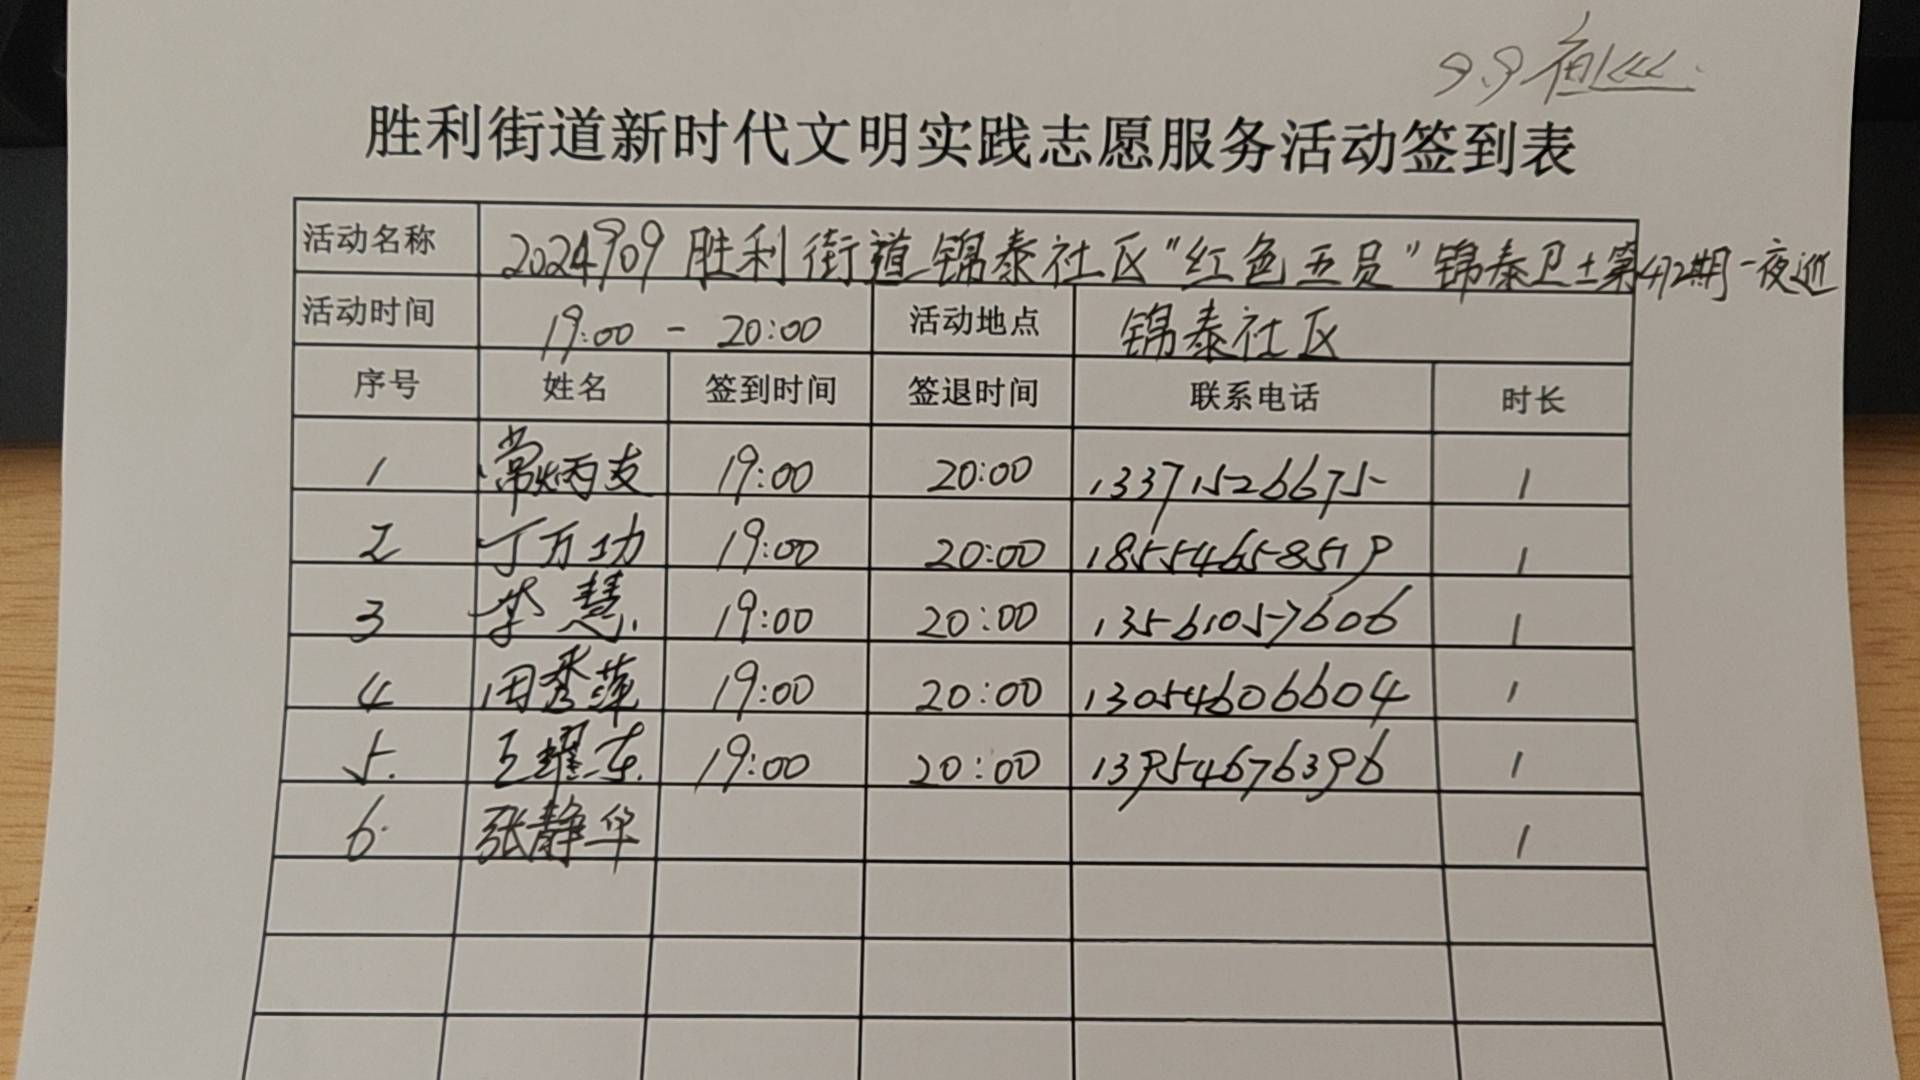 9.9夜巡
胜利街道新时代文明实践志愿服务活动签到表
活动名称 20240909 胜利街道锦泰社区"红色五员"锦泰卫士第412期-夜巡
活动时间 19:00 - 20:00 活动地点 锦泰社区
序号 姓名 签到时间 签退时间 联系电话 时长
1 常炳支 19:00 20:00 13371526675 1
2 丁万功 19:00 20:00 18554658519 1
3 李慧 19:00 20:00 13561057606 1
4 田秀萍 19:00 20:00 13054606604 1
5. 王耀东 19:00 20:00 13954676396 1
6. 张静华 1